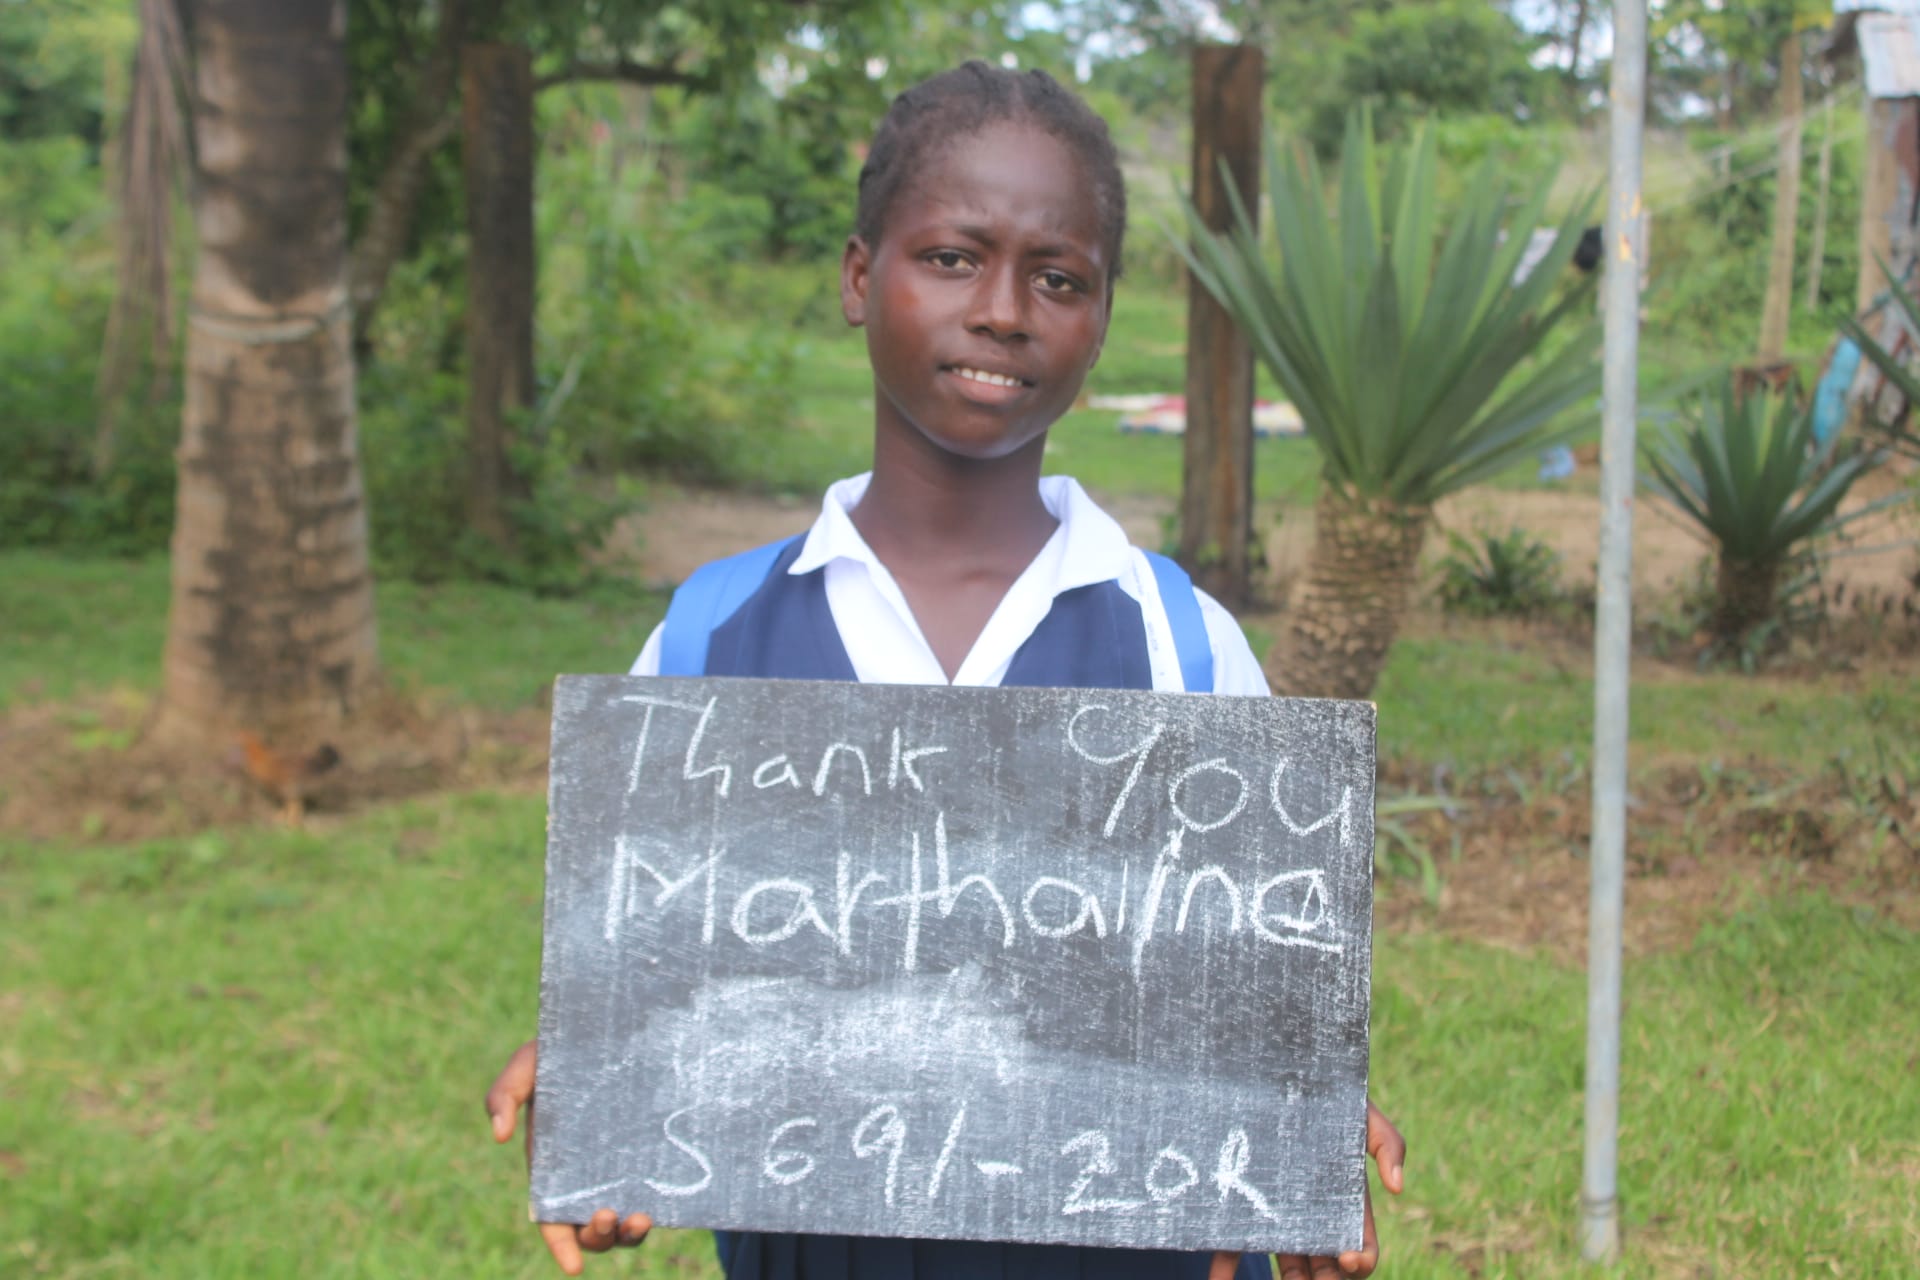 Thank You
Marthaline
S691-20R